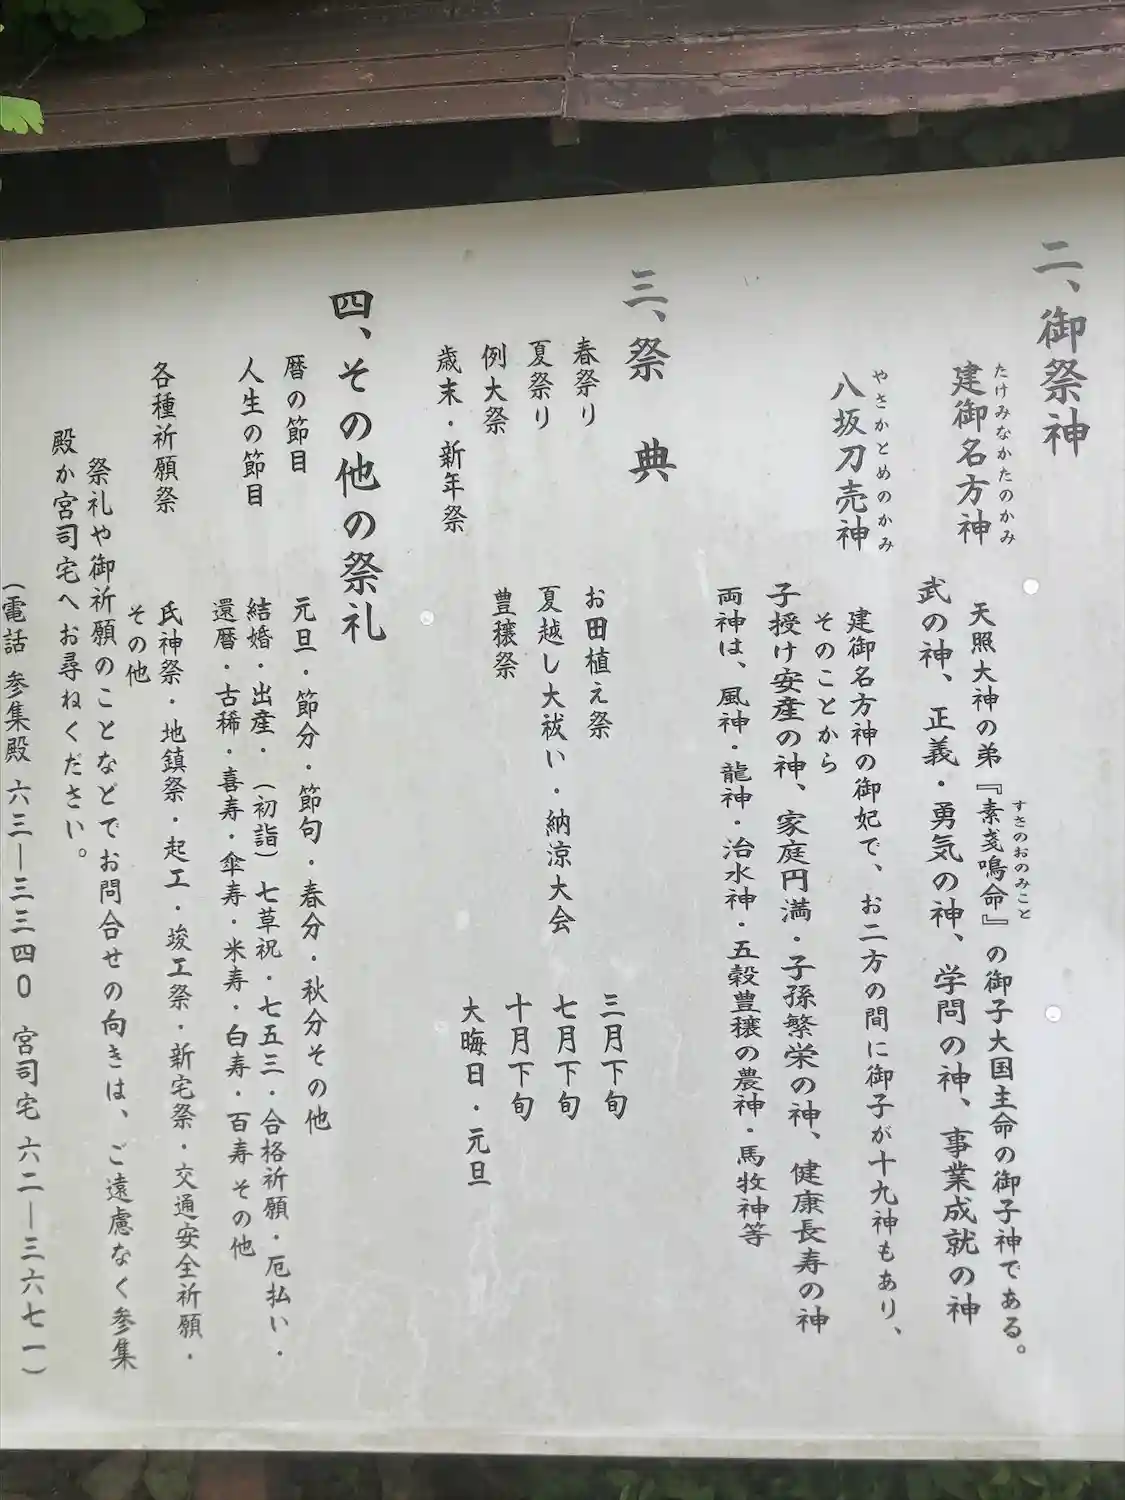 二、御祭神
たけみなかたのかみ
建御名方神
天照大神の弟『素戔鳴命』の御子大国主命の御子神である。
すさのおのみこと
武の神、正義・勇気の神、学問の神、事業成就の神
やさかとめのかみ
八坂刀売神
建御名方神の御妃で、お二方の間に御子が十九神もあり、
そのことから
子授け安産の神、家庭円満・子孫繁栄の神、健康長寿の神
両神は、風神・龍神・治水神・五穀豊穣の農神・馬牧神等
三、祭　典
春祭り　お田植え祭　三月下旬
夏祭り　夏越し大祓い・納涼大会　七月下旬
例大祭　豊穣祭　十月下旬
歳末・新年祭　大晦日・元旦
四、その他の祭礼
暦の節目　元旦・節分・節句・春分・秋分その他
人生の節目　結婚・出産・（初詣）七草祝・七五三・合格祈願・厄払い・
還暦・古稀・喜寿・傘寿・米寿・白寿・百寿その他
各種祈願祭　氏神祭・地鎮祭・起工・竣工祭・新宅祭・交通安全祈願・
その他
祭礼や御祈願のことなどでお問合せの向きは、ご遠慮なく参集
殿か宮司宅へお尋ねください。
（電話　参集殿　六三―三三四0　宮司宅　六二―三六七一）